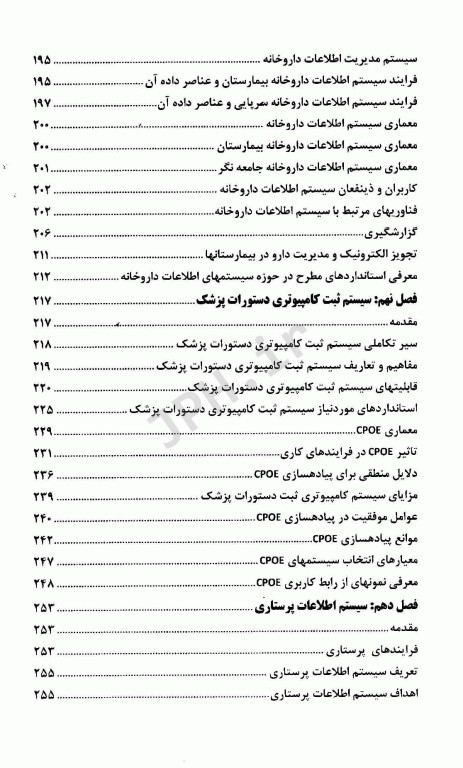 سیستم مدیریت اطلاعات داروخانه ..... ۱۹۵
فرایند سیستم اطلاعات داروخانه بیمارستان و عناصر داده آن ..... ۱۹۵
فرایند سیستم اطلاعات داروخانه سرپایی و عناصر داده آن ..... ۱۹۷
معماری سیستم اطلاعات داروخانه ..... ۲۰۰
معماری سیستم اطلاعات داروخانه بیمارستان ..... ۲۰۰
معماری سیستم اطلاعات داروخانه جامعه نگر ..... ۲۰۱
کاربران و ذینفعان سیستم اطلاعات داروخانه ..... ۲۰۲
فناوریهای مرتبط با سیستم اطلاعات داروخانه ..... ۲۰۲
گزارشگیری ..... ۲۰۶
تجویز الکترونیک و مدیریت دارو در بیمارستانها ..... ۲۱۱
معرفی استانداردهای مطرح در حوزه سیستمهای اطلاعات داروخانه ..... ۲۱۲
فصل نهم: سیستم ثبت کامپیوتری دستورات پزشک ..... ۲۱۷
مقدمه ..... ۲۱۷
سیر تکاملی سیستم ثبت کامپیوتری دستورات پزشک ..... ۲۱۸
مفاهیم و تعاریف سیستم ثبت کامپیوتری دستورات پزشک ..... ۲۱۹
قابلیتهای سیستم ثبت کامپیوتری دستورات پزشک ..... ۲۲۰
استانداردهای موردنیاز سیستم ثبت کامپیوتری دستورات پزشک ..... ۲۲۵
معماری CPOE ..... ۲۲۹
تاثیر CPOE در فرایندهای کاری ..... ۲۳۱
دلایل منطقی برای پیادهسازی CPOE ..... ۲۳۶
مزایای سیستم کامپیوتری ثبت دستورات پزشک ..... ۲۳۹
عوامل موفقیت در پیادهسازی CPOE ..... ۲۴۰
موانع پیادهسازی CPOE ..... ۲۴۲
معیارهای انتخاب سیستمهای CPOE ..... ۲۴۷
معرفی نمونهای از رابط کاربری CPOE ..... ۲۴۸
فصل دهم: سیستم اطلاعات پرستاری ..... ۲۵۳
مقدمه ..... ۲۵۳
فرایندهای پرستاری ..... ۲۵۳
تعریف سیستم اطلاعات پرستاری ..... ۲۵۵
اهداف سیستم اطلاعات پرستاری ..... ۲۵۵